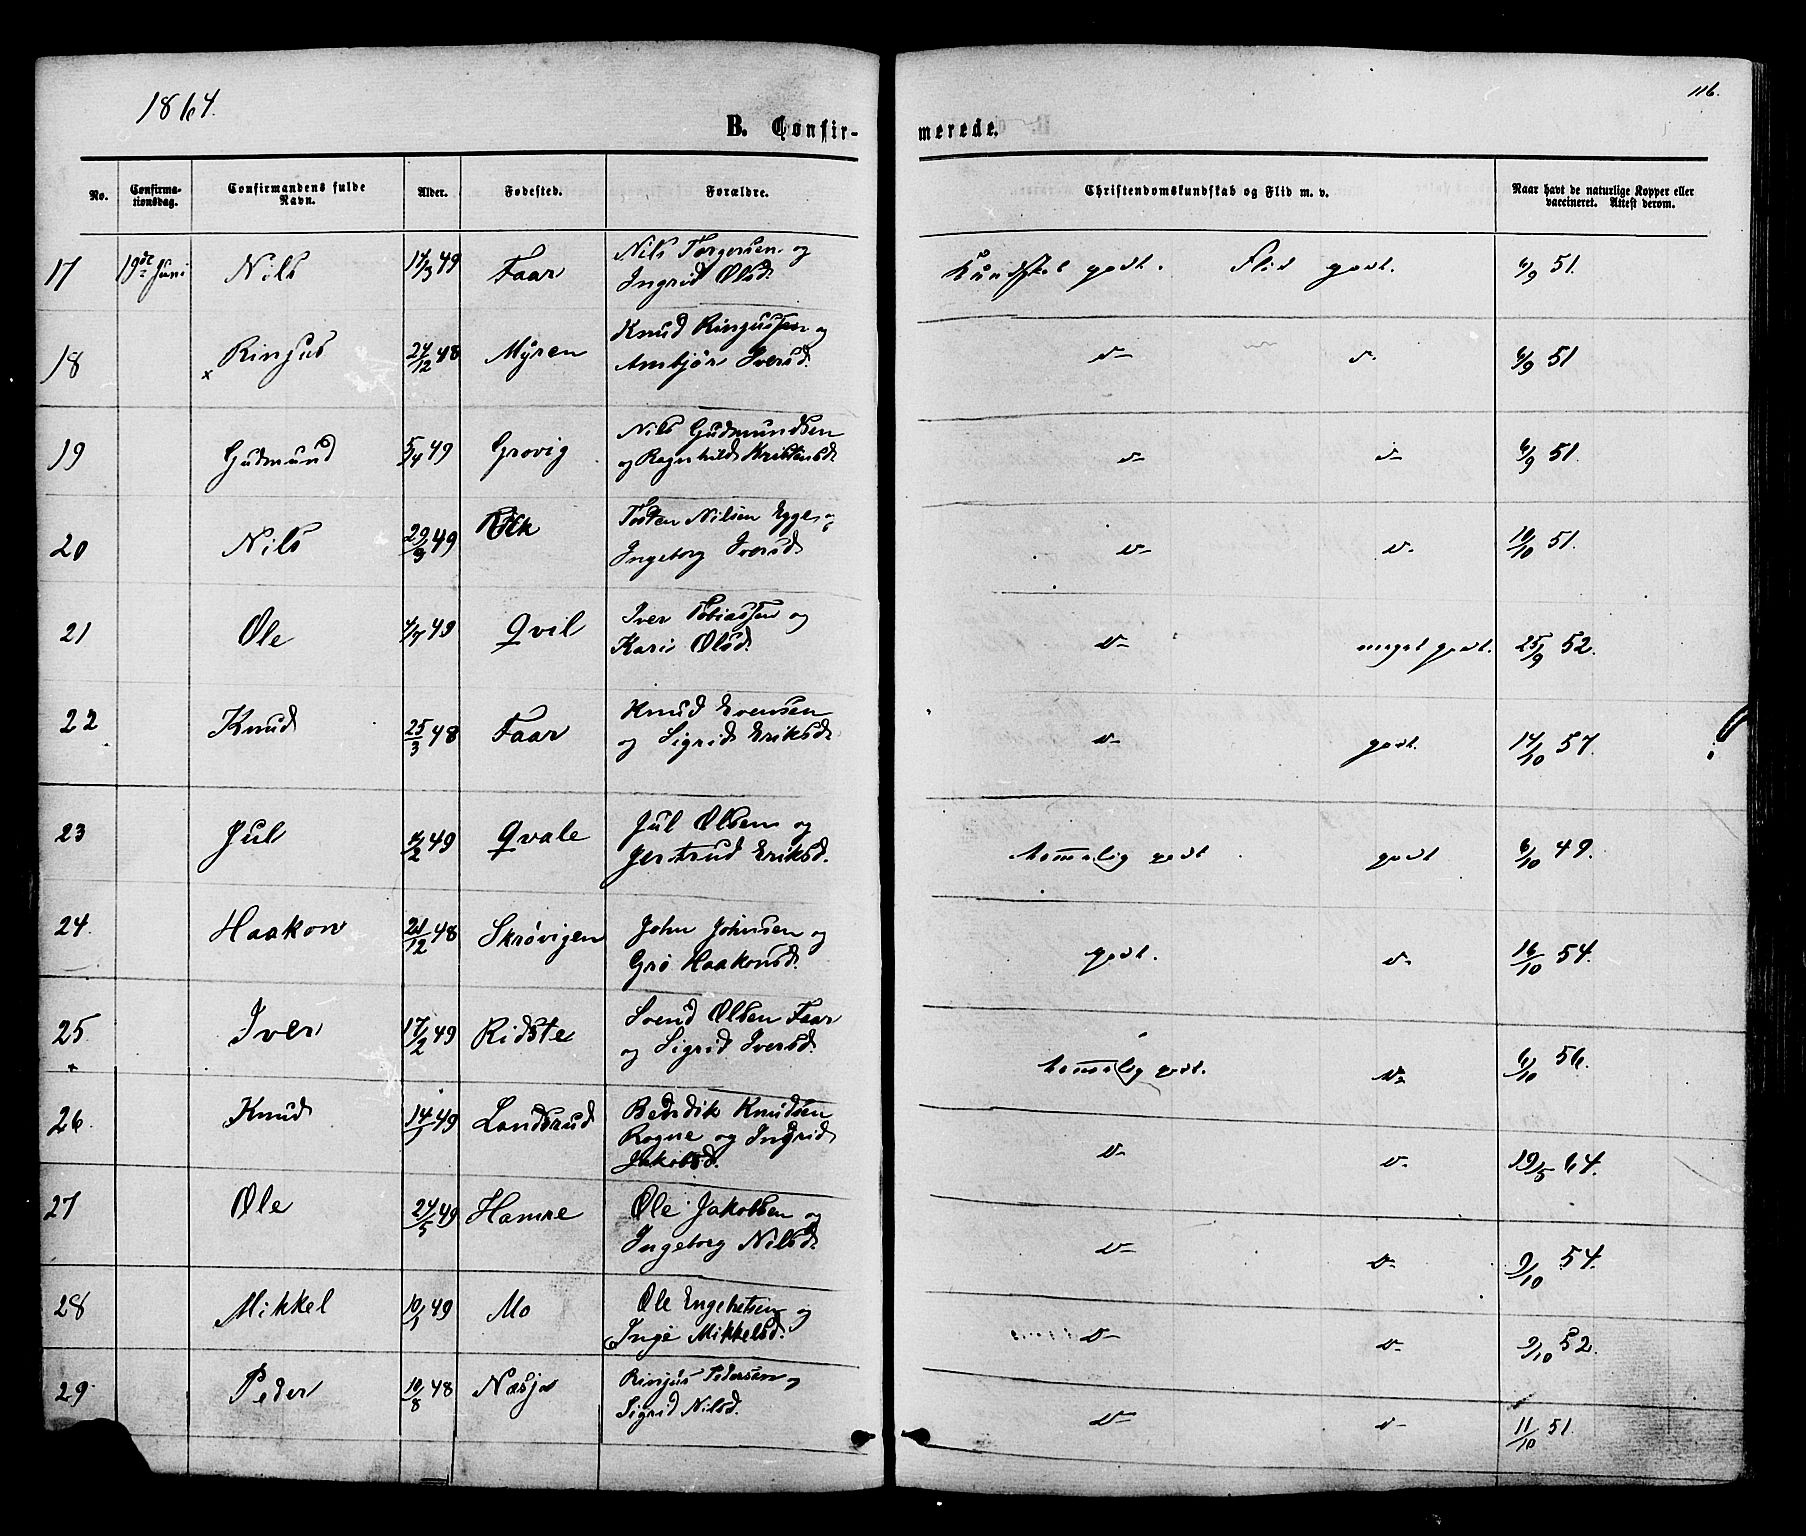 1864.
116.
B. Confir-
merede.
No.
Confirma-
tionsdag.
Confirmandens fulde
Navn.
Alder.
Fødested.
Forældre.
Christendomskundskab og Flid m. v.
Naar havt de naturlige Kopper eller
vaccineret. Attest derom.
17 19de Juni Nils 17/3 49 Faar Nils Torgersen og
Ingrid Olsd. Kundskab godt. Flid godt. 6/9 51.
18 × Ringus 24/12 48 Myren Knud Ringussen og
Ambjør Iversd. d- d- 6/9 51
19 Gudmund 5/4 49 Grovig Nils Gudmundsen
og Ragnhild Kristensd. d- d- 6/9 51.
20 Nils 29/9 49 Tosten Nilsen Egge og
Ingeborg Iversd. d- d- 10/10 51.
21 Ole 4/7 49 Qvil Iver Tobiassen og
Kari Olsd. d- meget godt. 25/9 52.
22 Knud 25/3 48 Faar Knud Evensen
og Sigrid Eriksd. d- godt. 14/10 57.
23 Jul /2 49 Qvale Jul Olsen og
Jertrud Eriksd. temmelig godt godt 6/10 49.
24. Haakon 21/12 48 Skrøvigen John Johnsen og
Grø Haakonsd. godt. d- 16/10 54.
25 Iver 17/2 49 Ridste Svend Olsen Faar
og Sigrid Iversd. temmelig godt. d- 6/10 56.
26. Knud 14/1 49 Landsrud Bendik Knudsen
Rogne og Ingrid
Jakobsd. d- d- 19/5 64.
27 Ole 24/5 49 Hamre Ole Jakobsen og
Ingeborg Nilsd. d- d- 9/10 54.
28 Mikkel 10/1 49 Mo Ole Engebretsen og
Inge Mikkelsd. d- d- 9/10 52.
29. Peder 10/8 48 Næsja Ringus Pedersen og
Sigrid Nilsd. d- d- 11/10 51.